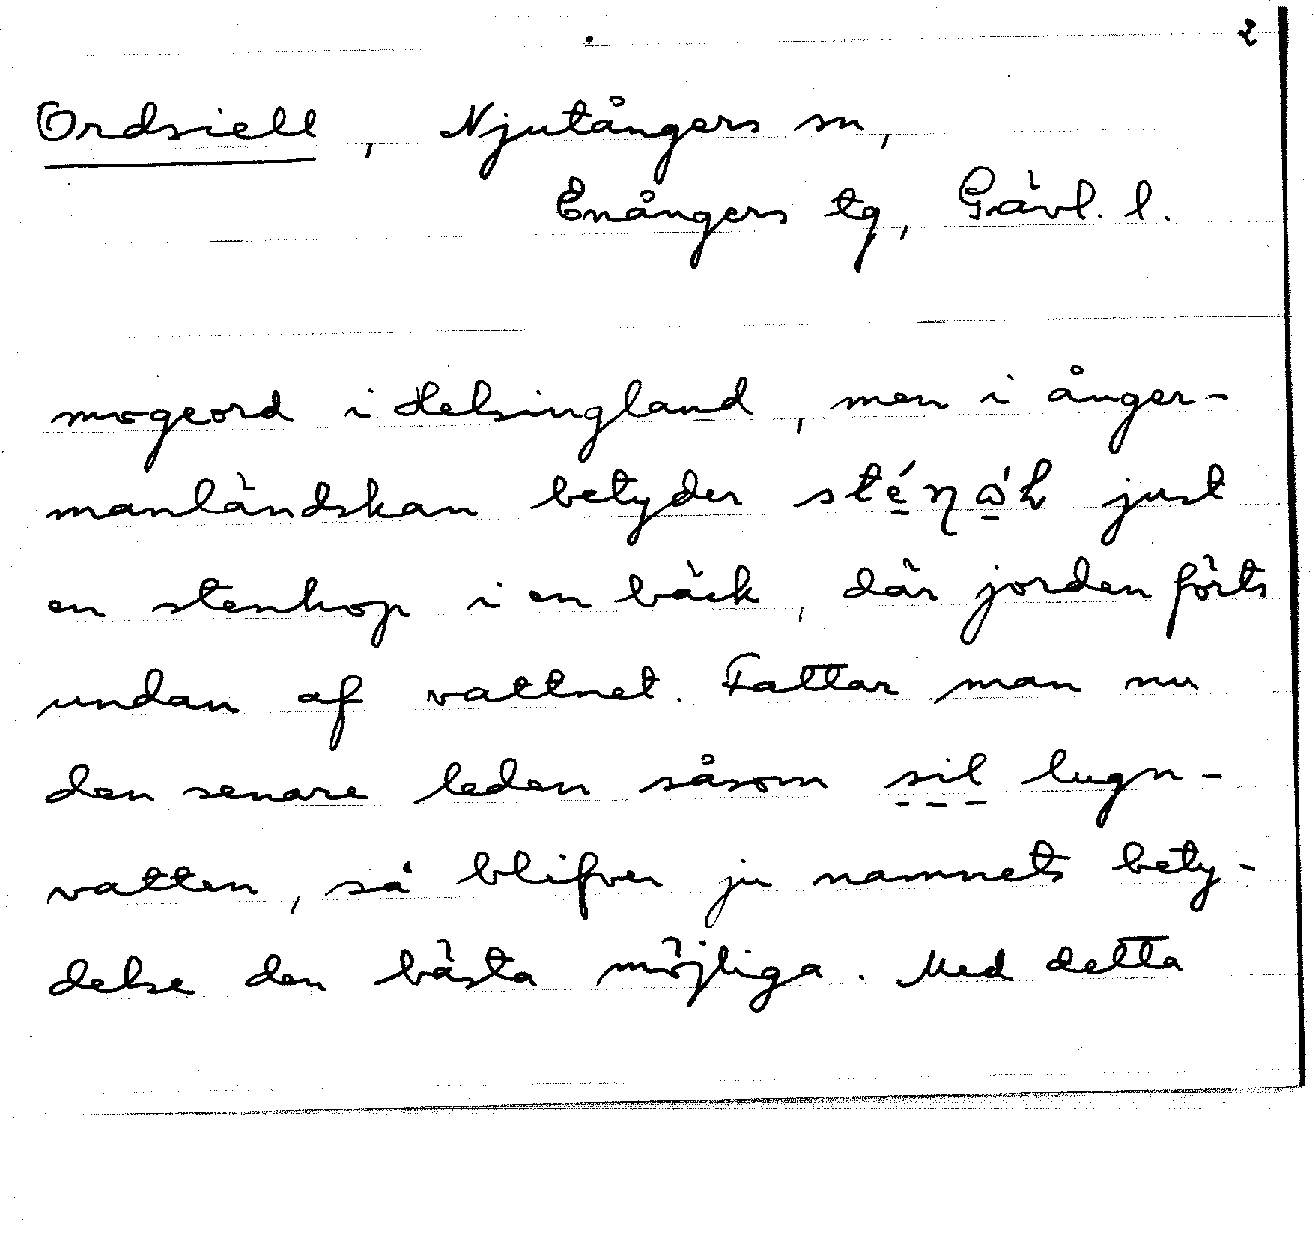 2
Ordsiell, Njutångers sn,
Enångers tg, Gävl. l.
mogeord i Helsingland, men i ånger-
manländskan betyder just
en stenhop i en bäck, där jorden förts
undan af vattnet. Fattar man nu
den senare leden såsom sil lugn-
vatten, så blifver ju namnets bety-
delse den bästa möjliga. Med detta